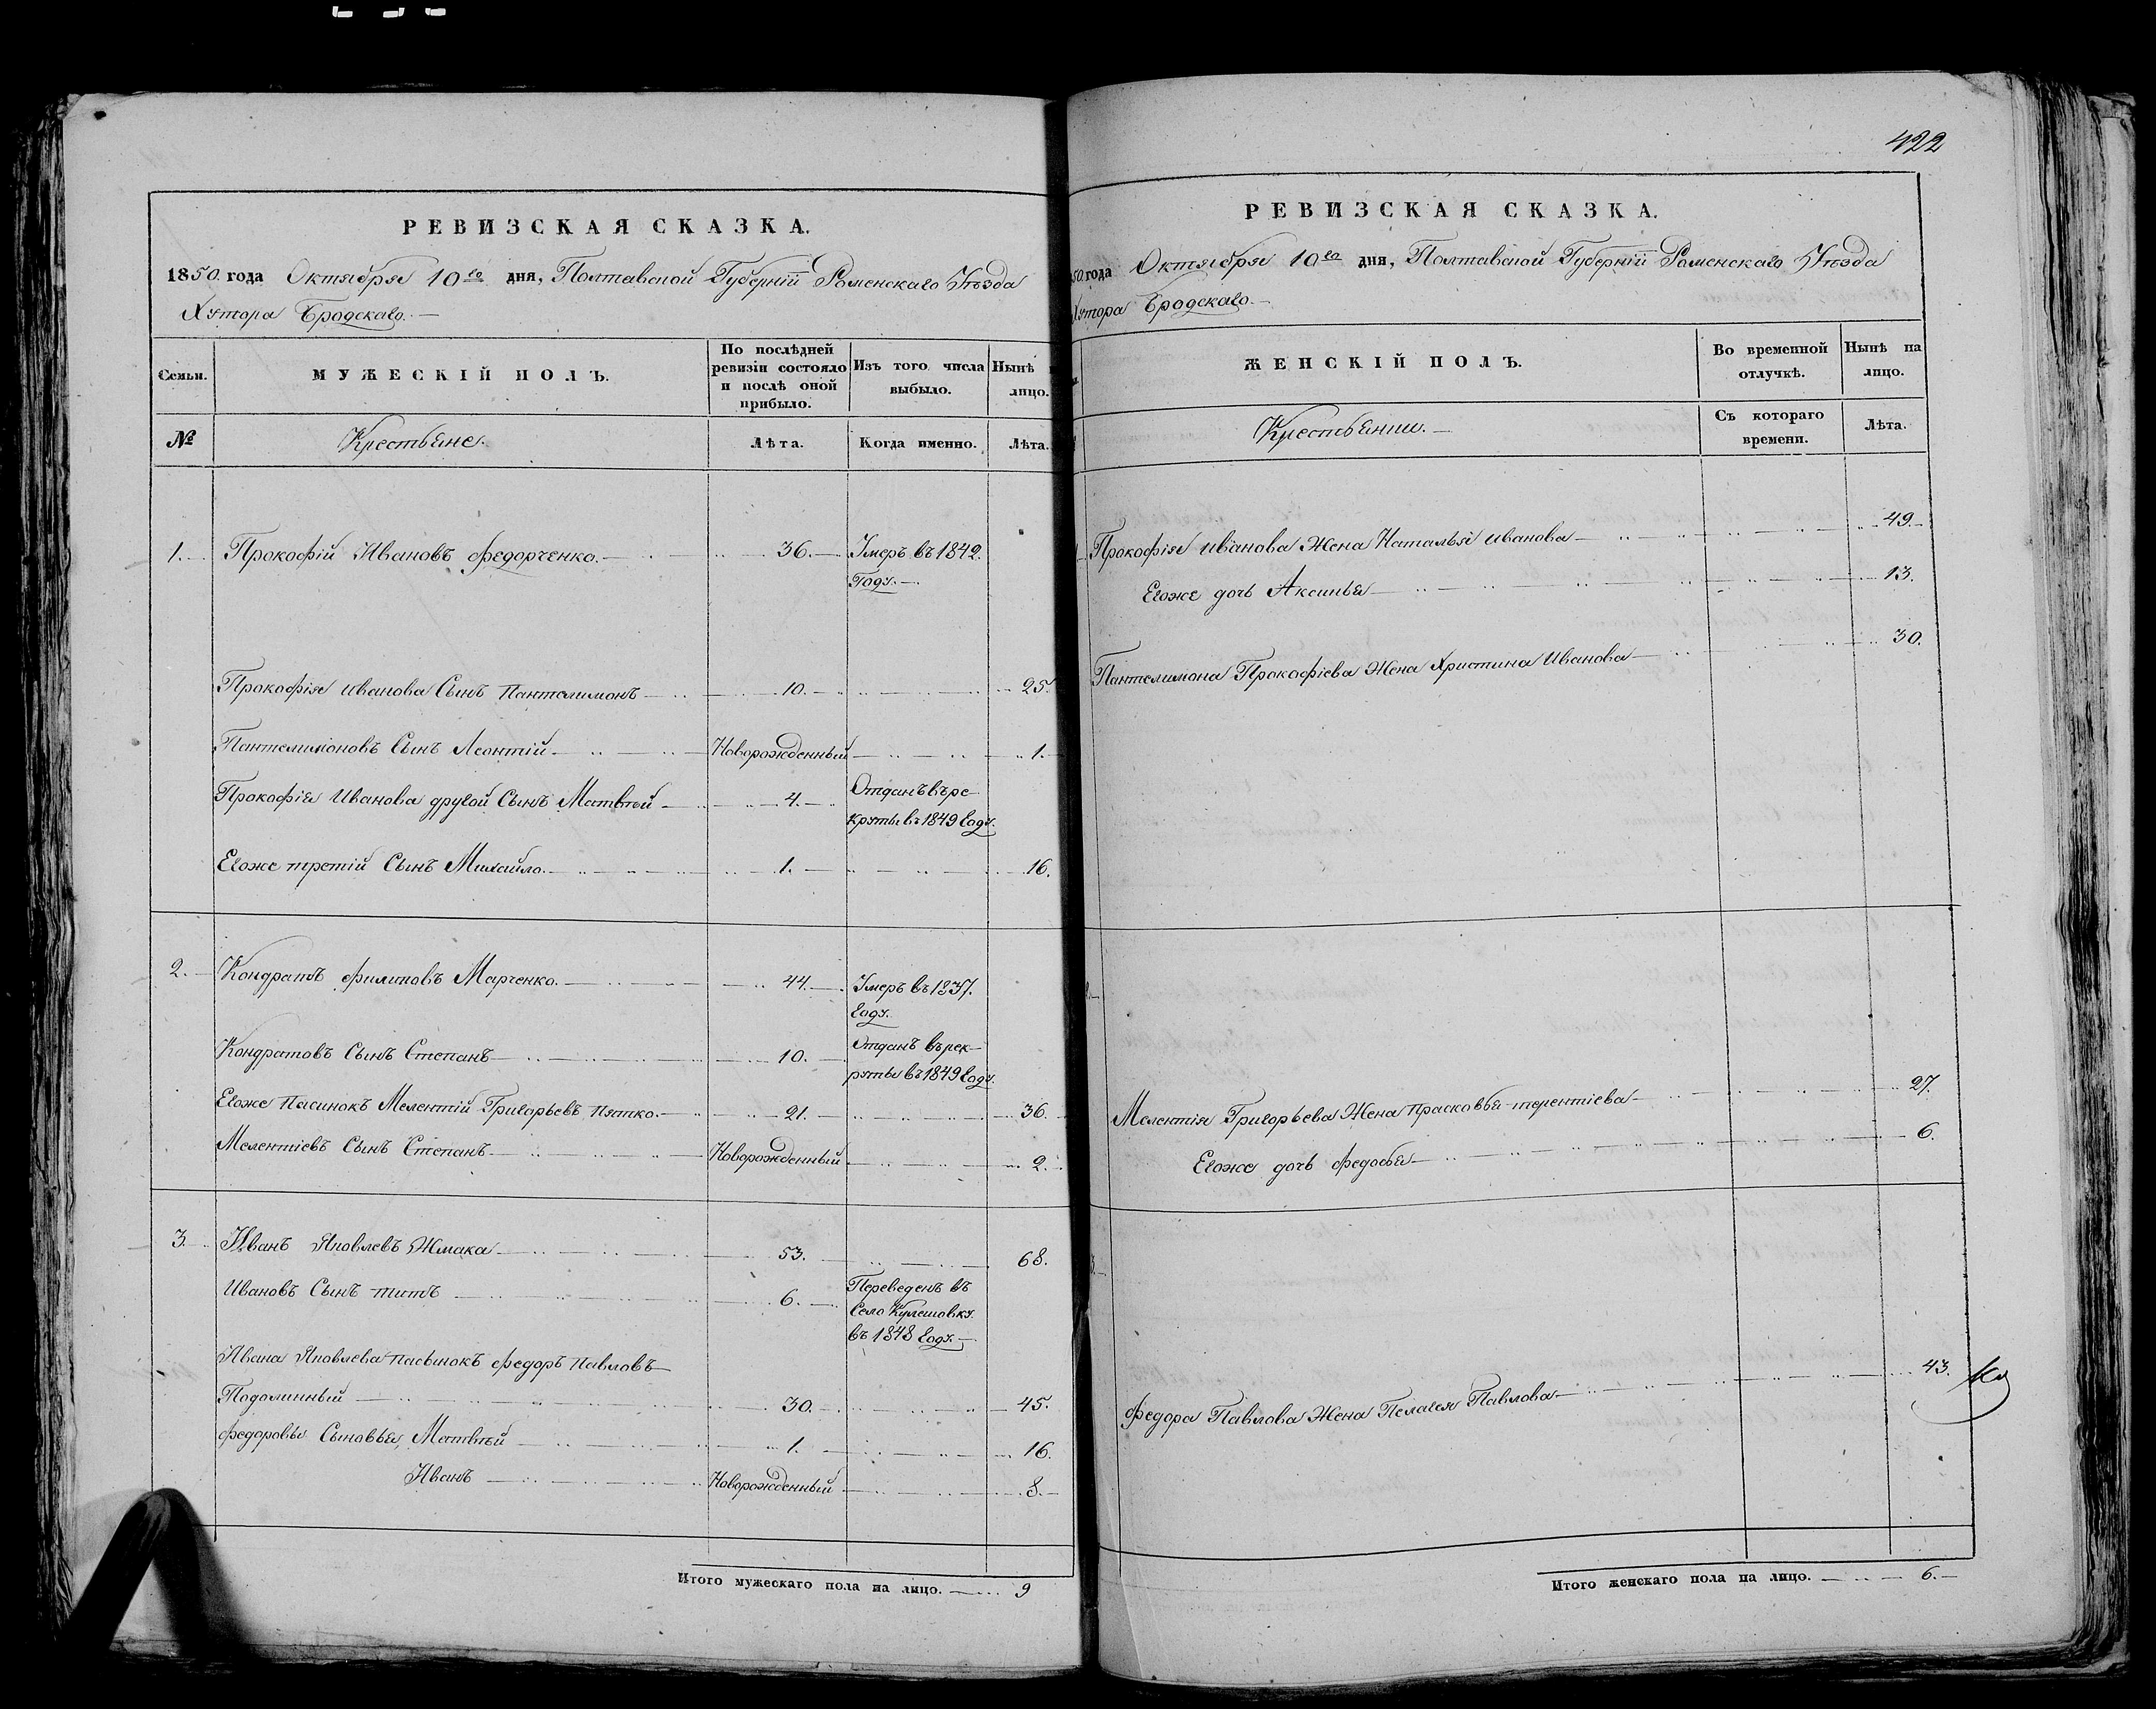 РЕВИЗСКАЯ СКАЗКА.
1850. года Октября 10го дня, Полтавской Губерніи Роменскаго Уѣзда
Хутора Бродскаго. —
Семьи.
МУЖЕСКІЙ ПОЛЪ.
По послѣдней ревизіи состояло и послѣ оной прибыло.
Изъ того числа выбыло.
Нынѣ
лицо.
№
Крестьяне.
Лѣта.
Когда именно.
Лѣта.
1. Прокофій Ивановъ Федорченко. — 36. — Умеръ въ 1842.
Году. —
Прокофія иванова Сынъ Пантелимонъ — 10. — 25.
Пантелимоновъ Сынъ Леонтій — Новорожденный — 1.
Прокофія Иванова другой Сынъ Матвѣй — 4. — Отданъ въ ре-
круты въ 1849 году.
Егоже третій Сынъ Михайло. — 1. — 16.
2. Кондратъ Филиповъ Марченко. — 44. — Умеръ въ 1837.
году.
Кондратовъ Сынъ Степанъ — 10. — Отданъ въ рек-
руты въ 1849 году.
Егоже Пасинокъ Мелентій Григорьевъ Пятко. — 21. — 36.
Мелентіевъ Сынъ Степанъ — Новорожденный — 2.
3. Иванъ Яковлевъ Жмака — 53. — 68.
Ивановъ Сынъ титъ — 6. — Переведенъ въ
Село Кулешовку
въ 1848 году. —
Ивана Яковлева пасынокъ Федоръ Павловъ —
Подолинный — 30. — 45.
Федоровы Сыновья, Матвѣй — 1. — 16.
Иванъ — Новорожденный — 8. —
Итого мужескаго пола на лицо. — 9
422
РЕВИЗСКАЯ СКАЗКА.
50. года Октября 10го дня, Полтавской Губерніи Роменскаго Уѣзда
Хутора Бродскаго. —
ЖЕНСКІЙ ПОЛЪ.
Во временной отлучкѣ.
Нынѣ на лицо.
Крестьянки. —
Съ котораго времени.
Лѣта.
Прокофія иванова Жена Наталья иванова — 49. —
Егоже дочь Аксинья — 13.
Пантелимона Прокофіева Жена Христина Иванова — 30.
Мелентія Григорьева Жена Прасковья терентіева — 27.
Егоже дочь Федосья — 6.
Федора Павлова Жена Пелагея Павлова — 43.
Итого женскаго пола на лицо. — 6. —